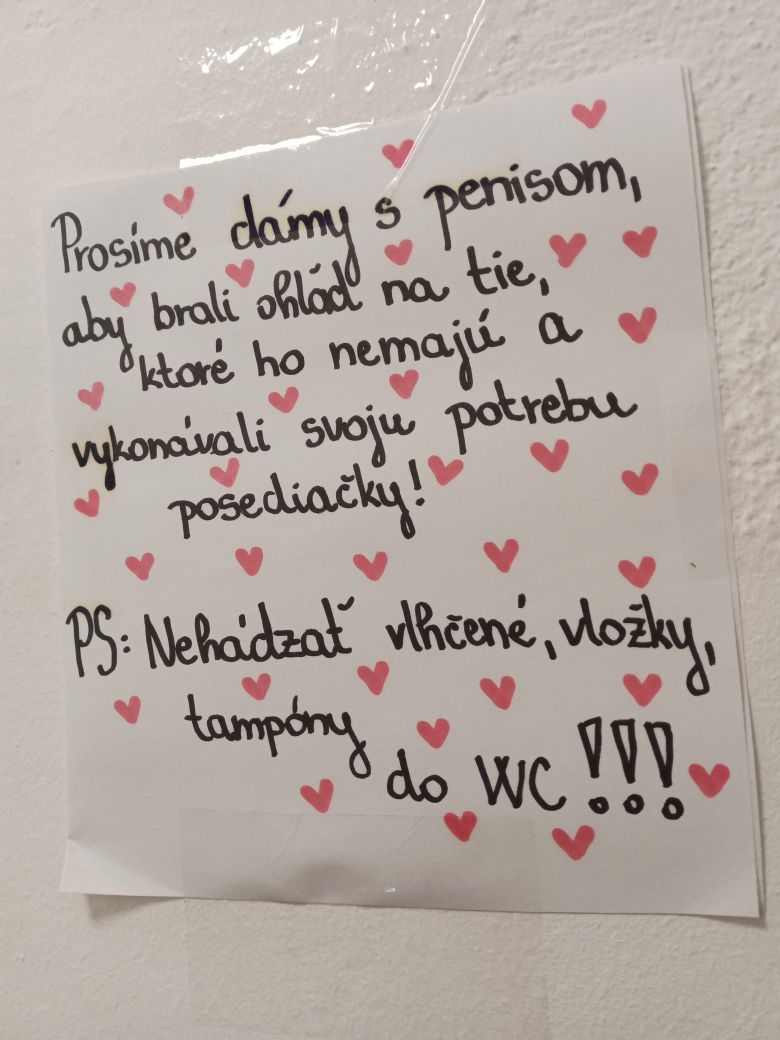 Prosíme dámy s penisom,
aby brali ohľad na tie,
ktoré ho nemajú a
vykonávali svoju potrebu
posediačky!
PS: Nehádzať vlhčené, vložky,
tampóny
do WC !!!